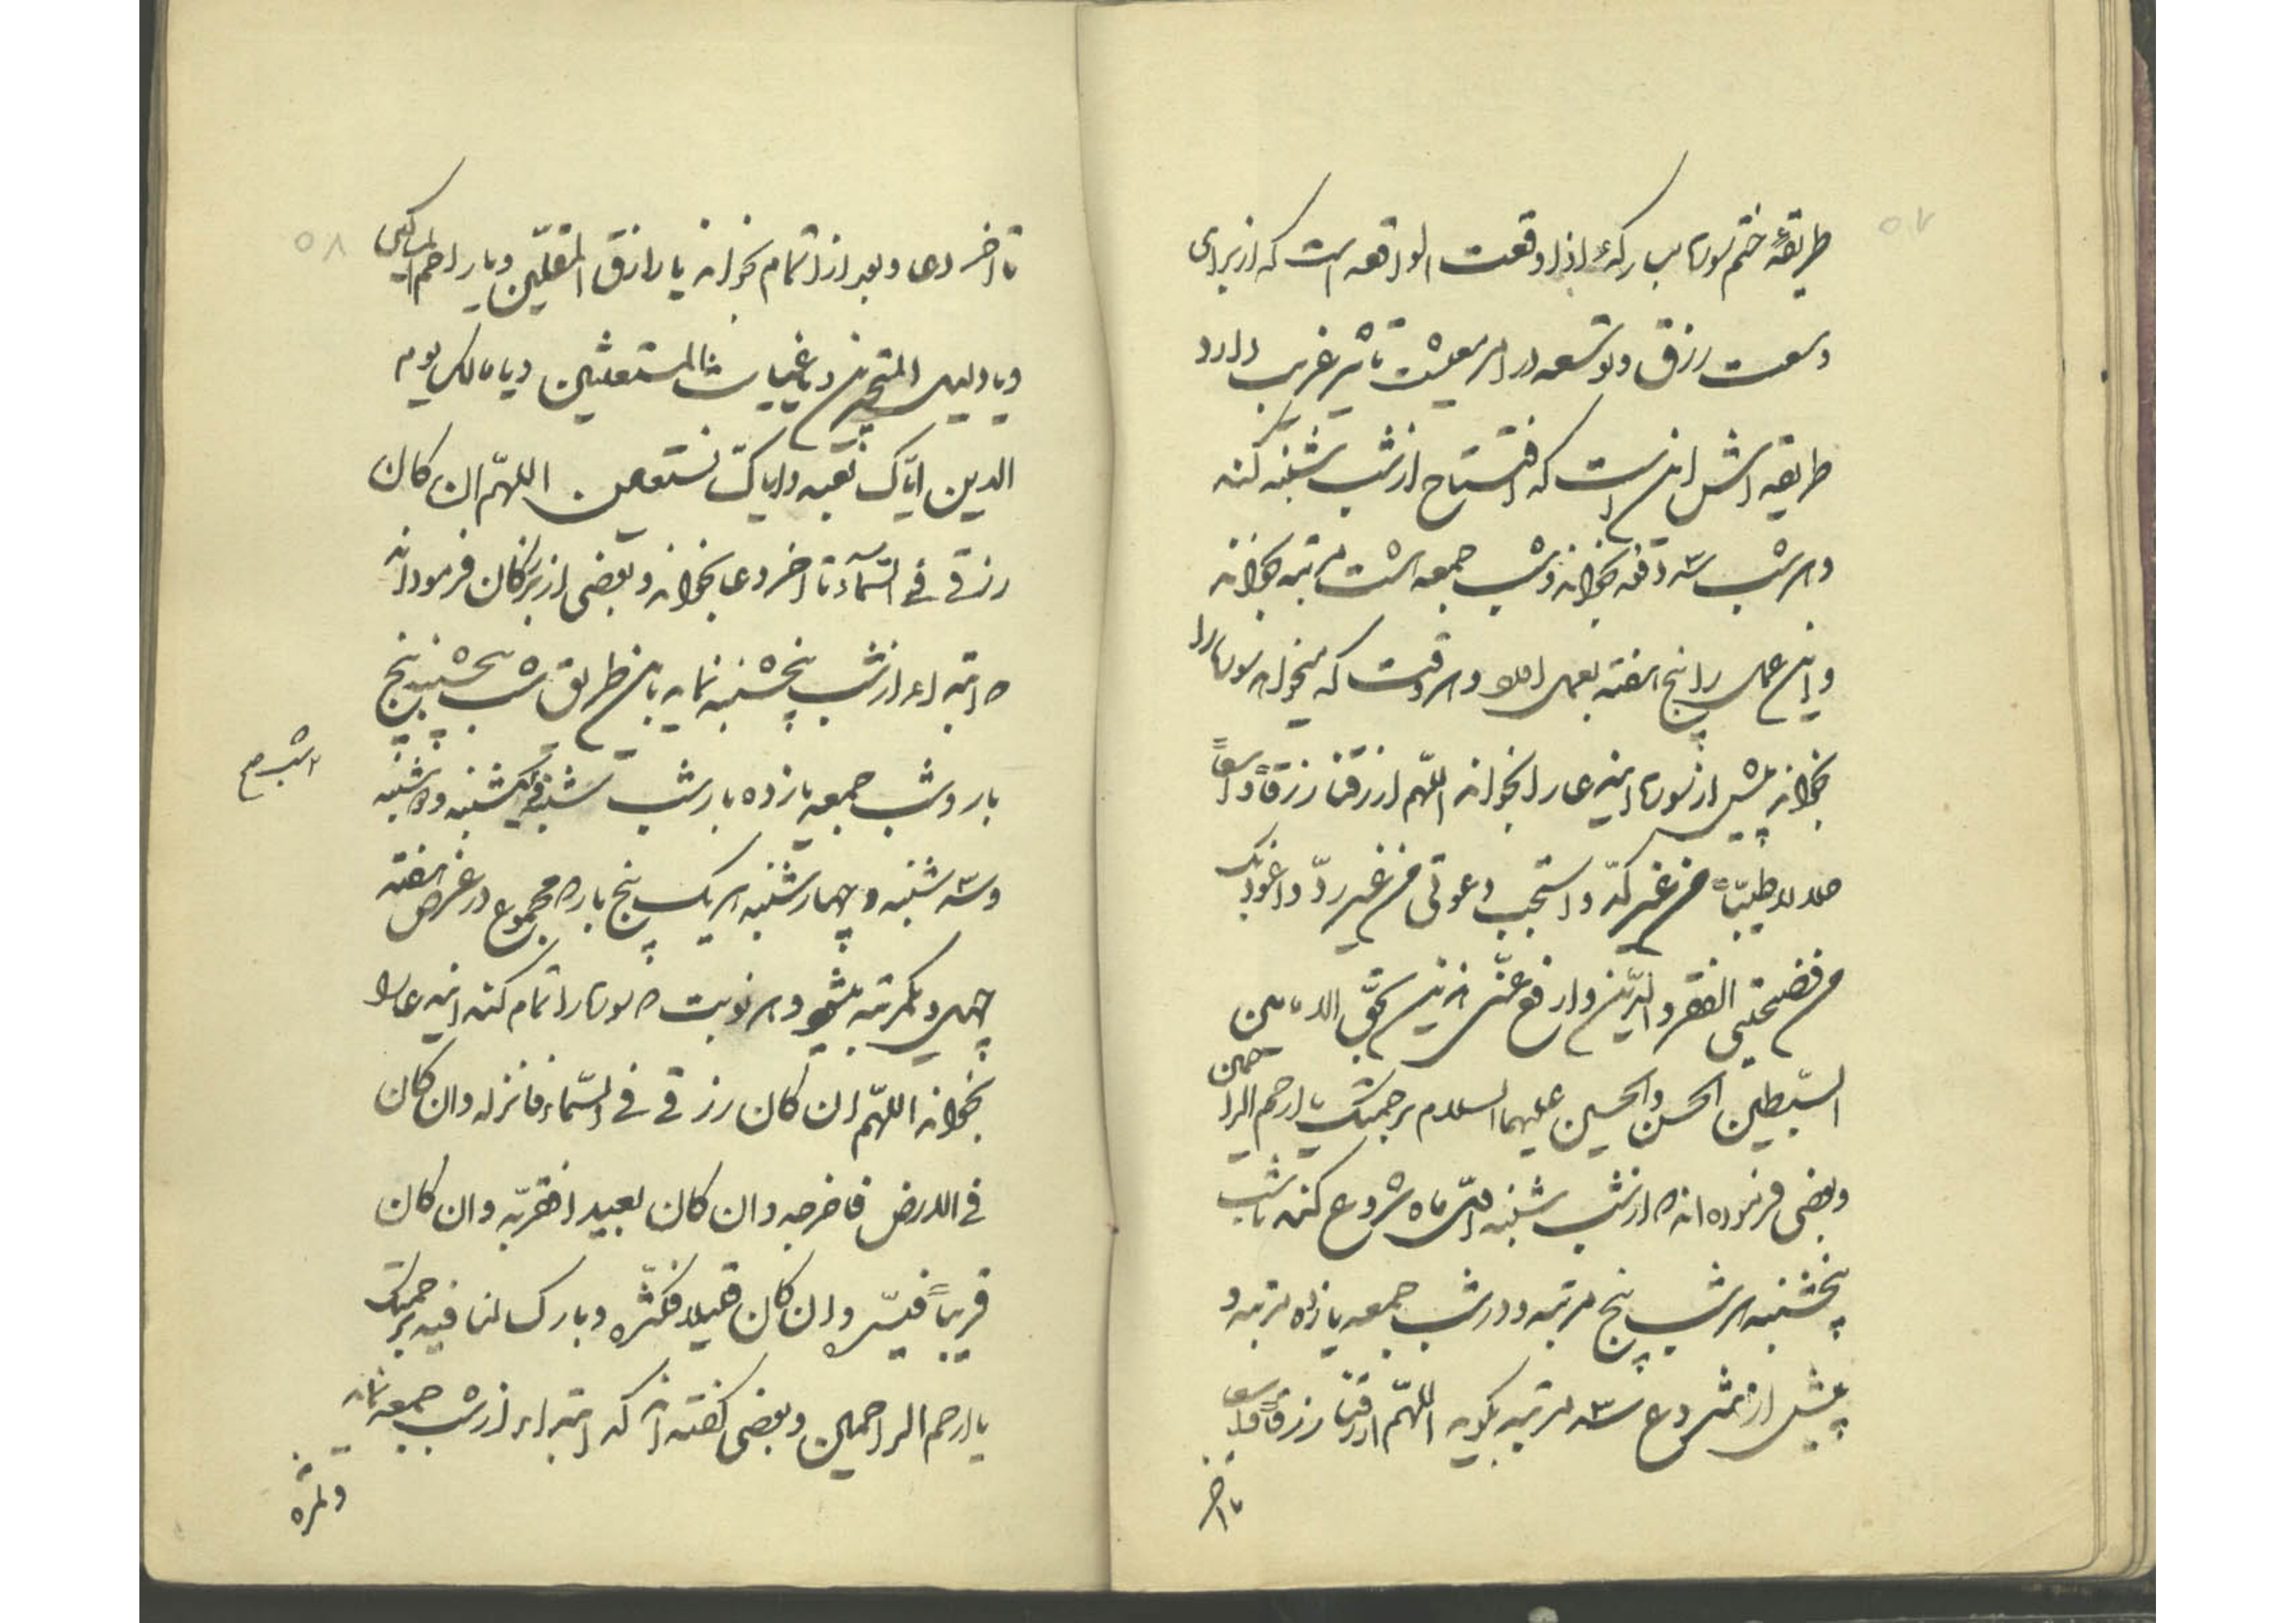 ۵۷
طریقهٔ ختم سورهٔ مبارکهٔ اذا وقعت الواقعه است که از برای
وسعت رزق و توسعه در امر معیشت تاثیر غریب دارد
طریقه اش این است که افتتاح از شب شنبه کند
و هر شب سه دفعه بخواند و شب جمعه هشت مرتبه بخواند
و این عمل را پنج هفته بعمل اورد و هر وقت که میخواهد سوره را
بخواند پیش از سوره اینعا را بخواند اللهّم ارزقنا رزقاً واسعاً
حلالا طیّباً من غیر کدّ و استجب دعوتی من غیر ردّ و اعوذ بک
من فضیحتی الفقر و الدّین و ارفع عنّی هذین بحقّ الامامین
السّبطین الحسن والحسین علیهما السلام برحمتک یا ارحم الراحمین
و بعضی فرموده اند که از شب شنبه اوّل ماه شروع کند تا شب
پنجشنبه هر شب پنج مرتبه و در شب جمعه یازده مرتبه و
پیش از شروع سه مرتبه بگوید اللهّم ارزقنا رزقاً واسعا
تا اخر
۵۸
تا اخر دعا و بعد از اتمام بخواند یا رازق المقلّین و یا راحم المساکین
و یا دلیل المتحیرین و یا غیاث المستغیثین و یا مالک یوم
الدین ایّاک نعبد و ایاک نستعین اللهّم ان کان
رزقی فی السّمآء تا اخر دعا بخواند و بعضی از بزرکان فرموده اند
که ابتداء از شب پنجشنبه نماید باین طریق شب پنجشنبه پنج
بار و شب جمعه یازده بار شب شنبه و یکشنبه و دوشنبه
و سه شنبه و چهارشنبه هر یک پنج بار که مجموع در عرض هفته
چهل و یکمرتبه میشود و هر نوبت که سوره را تمام کند اینعا را
بخواند اللهّم ان کان رزقی فی السّماء فانزله و ان کان
فی الارض فاخرجه و ان کان بعید افقرّبه و ان کان
قریباً فیسّره و ان کان قلیلا فکثّره و بارک لنا فیه برحمتک
یا ارحم الراحمین و بعضی کفته اند که ابتداء از شب جمعه نماید